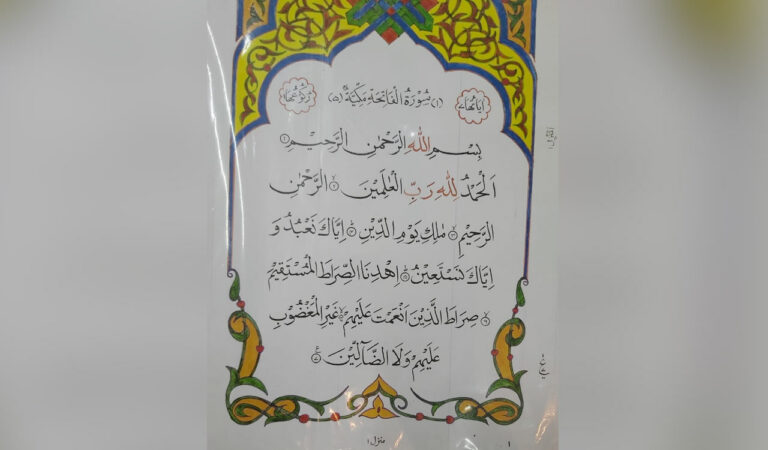 اٰيَاتُهَا ٧
(١) سُوْرَةُ الْفَاتِحَةِ مَكِّيَّةٌ (٥)
رُكُوْعُهَا
بِسْمِ اللّٰهِ الرَّحْمٰنِ الرَّحِيْمِ ١
اَلْحَمْدُ لِلّٰهِ رَبِّ الْعٰلَمِيْنَ ٢ الرَّحْمٰنِ
الرَّحِيْمِ ٣ مٰلِكِ يَوْمِ الدِّيْنِ ٤ اِيَّاكَ نَعْبُدُ وَ
اِيَّاكَ نَسْتَعِيْنُ ٥ اِهْدِنَا الصِّرَاطَ الْمُسْتَقِيْمَ
٦ صِرَاطَ الَّذِيْنَ اَنْعَمْتَ عَلَيْهِمْ غَيْرِ الْمَغْضُوْبِ
عَلَيْهِمْ وَلَا الضَّآلِّيْنَ ٧
منزل ١
١